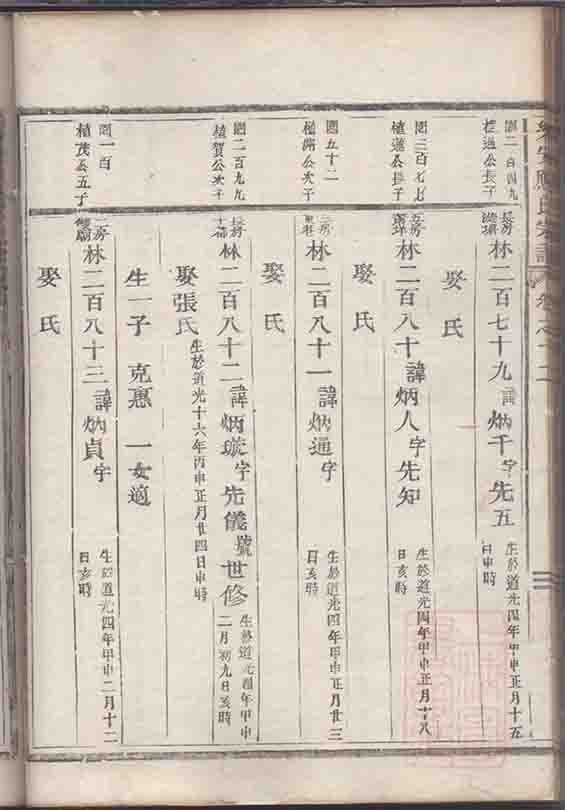 圖二百四九
植通公長子
長房
林二百七十九諱炳千字先五
生於道光四年甲申正月十五
日申時
娶氏
圖三百七七
植蓮公長子
林二百八十諱炳人字先知
生於道光四年甲申正月十八
日亥時
娶氏
圖五十二
公次子
林二百八十一諱炳通字
生於道光四年甲申正月廿三
日亥時
娶氏
圖二百九九
植賀公次子
長房
林二百八十二諱炳璇字先儀號世修
生於道光四年甲申
二月初九日亥時
娶張氏
生於道光十六年丙申正月廿四日申時
生一子 克惠 一女適
圖一百
植茂公五子
林二百八十三諱炳貞字
生於道光四年甲申二月十二
日亥時
娶氏